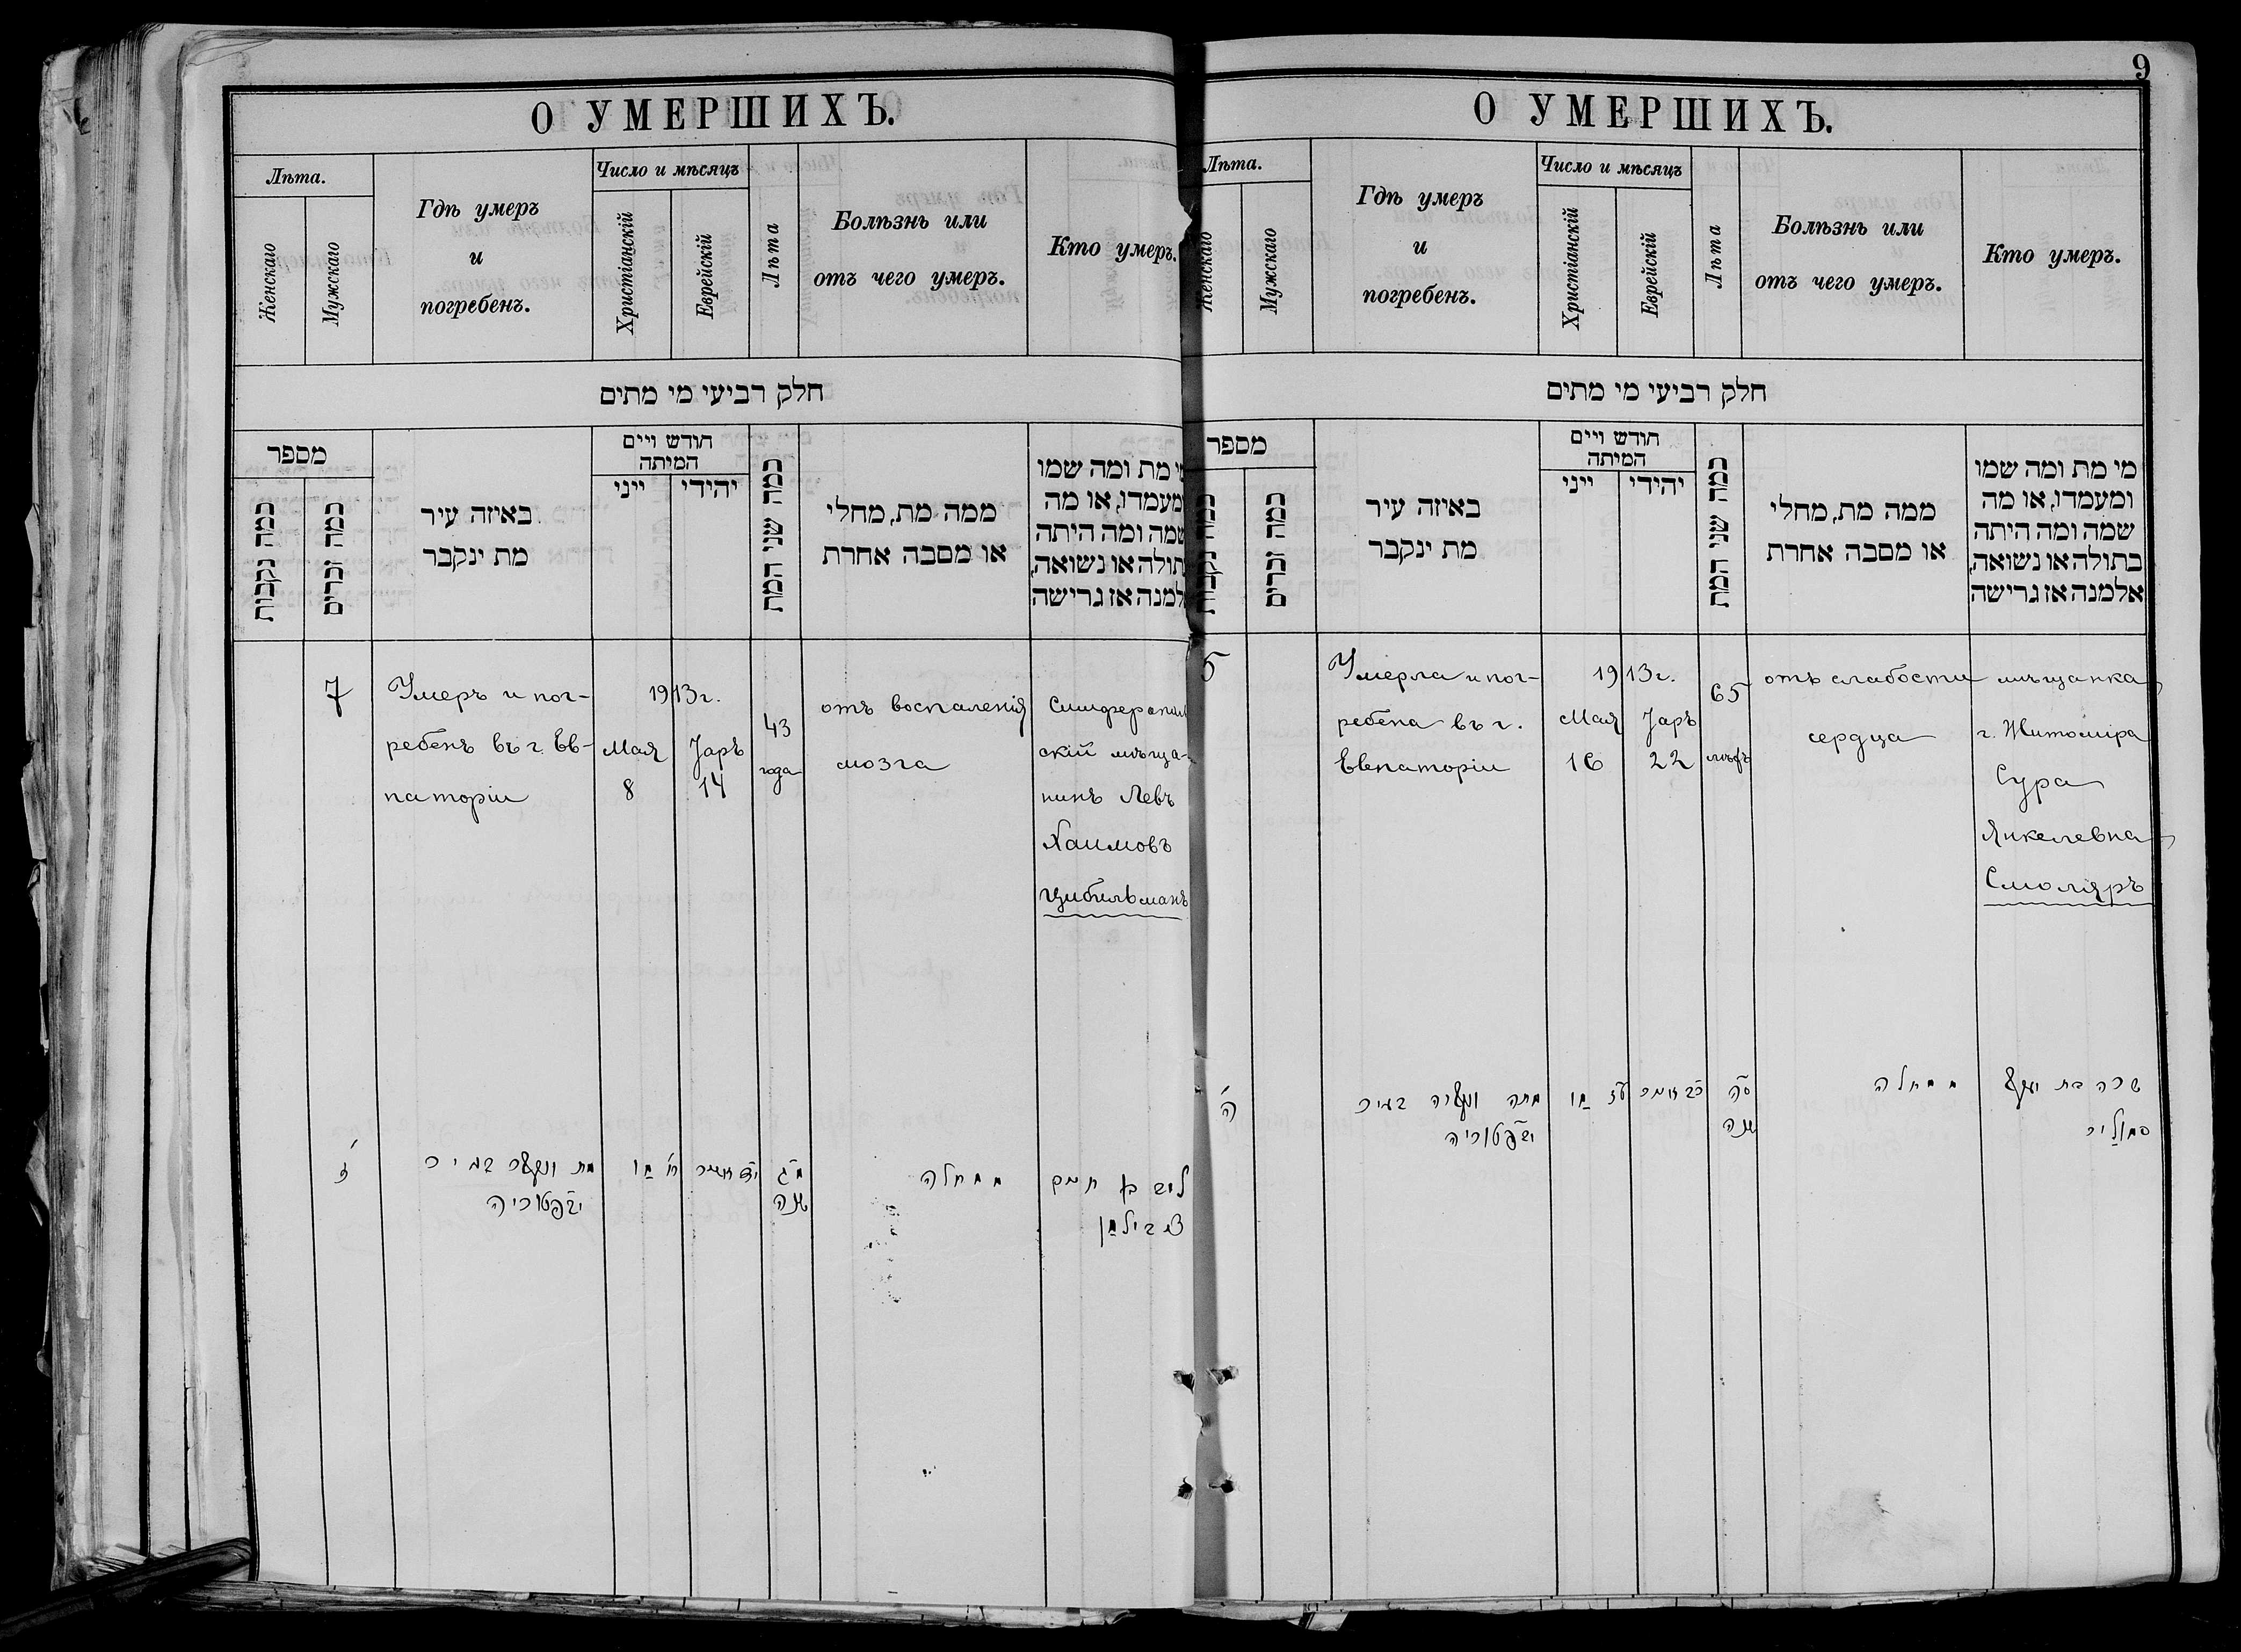 О УМЕРШИХЪ.
Лѣта.
Женскаго
Мужскаго
Гдѣ умеръ
и
погребенъ.
Число и мѣсяцъ
Христіанскій
Еврейскій
Лѣта
Болѣзнь или
отъ чего умеръ.
Кто умеръ.
חלק רביעי מי מתים
מספר
כמה נקבות
כמה זכרים
באיזה עיר
מת ינקבר
חודש ויים
המיתה
ייני
יהידי
כמה שני המת
ממה מת, מחלי
או מסבה אחרת
מי מת ומה שמו
ומעמדו, או מה
שמה ומה היתה
בתולה או נשואה,
אלמנה אז גרישה
7
Умеръ и пог-
ребенъ въ г. Ев-
паторіи
1913 г.
Мая
8
Іаръ
14
43
года
отъ воспаленія
мозга
Симферополь
скій мѣща-
нинъ Левъ
Хаимовъ
Цибильманъ
ז'
מת ונקבר בעיר
יבפטוריה
ח' מאי
י״ד אייר
מ״ג
שנה
ממחלה
ליב בן חיים
ציבילמן
9
О УМЕРШИХЪ.
Лѣта.
Женскаго
Мужскаго
Гдѣ умеръ
и
погребенъ.
Число и мѣсяцъ
Христіанскій
Еврейскій
Лѣта
Болѣзнь или
отъ чего умеръ.
Кто умеръ.
חלק רביעי מי מתים
מספר
כמה נקבות
כמה זכרים
באיזה עיר
מת ינקבר
חודש ויים
המיתה
ייני
יהידי
כמה שני המת
ממה מת, מחלי
או מסבה אחרת
מי מת ומה שמו
ומעמדו, או מה
שמה ומה היתה
בתולה או נשואה,
אלמנה אז גרישה
5
Умерла и пог-
ребена въ г.
Евпаторіи
1913 г.
Мая
16
Іаръ
22
65
лѣтъ
отъ слабости
сердца
мѣщанка
г. Житоміра
Сура
Янкелевна
Смоляръ
ה'
מתה ונקברה בעיר
יבפטוריה
ט״ז מאי
כ״ב אייר
ס״ה
שנה
ממחלה
שרה בת יעקב
סמוליר